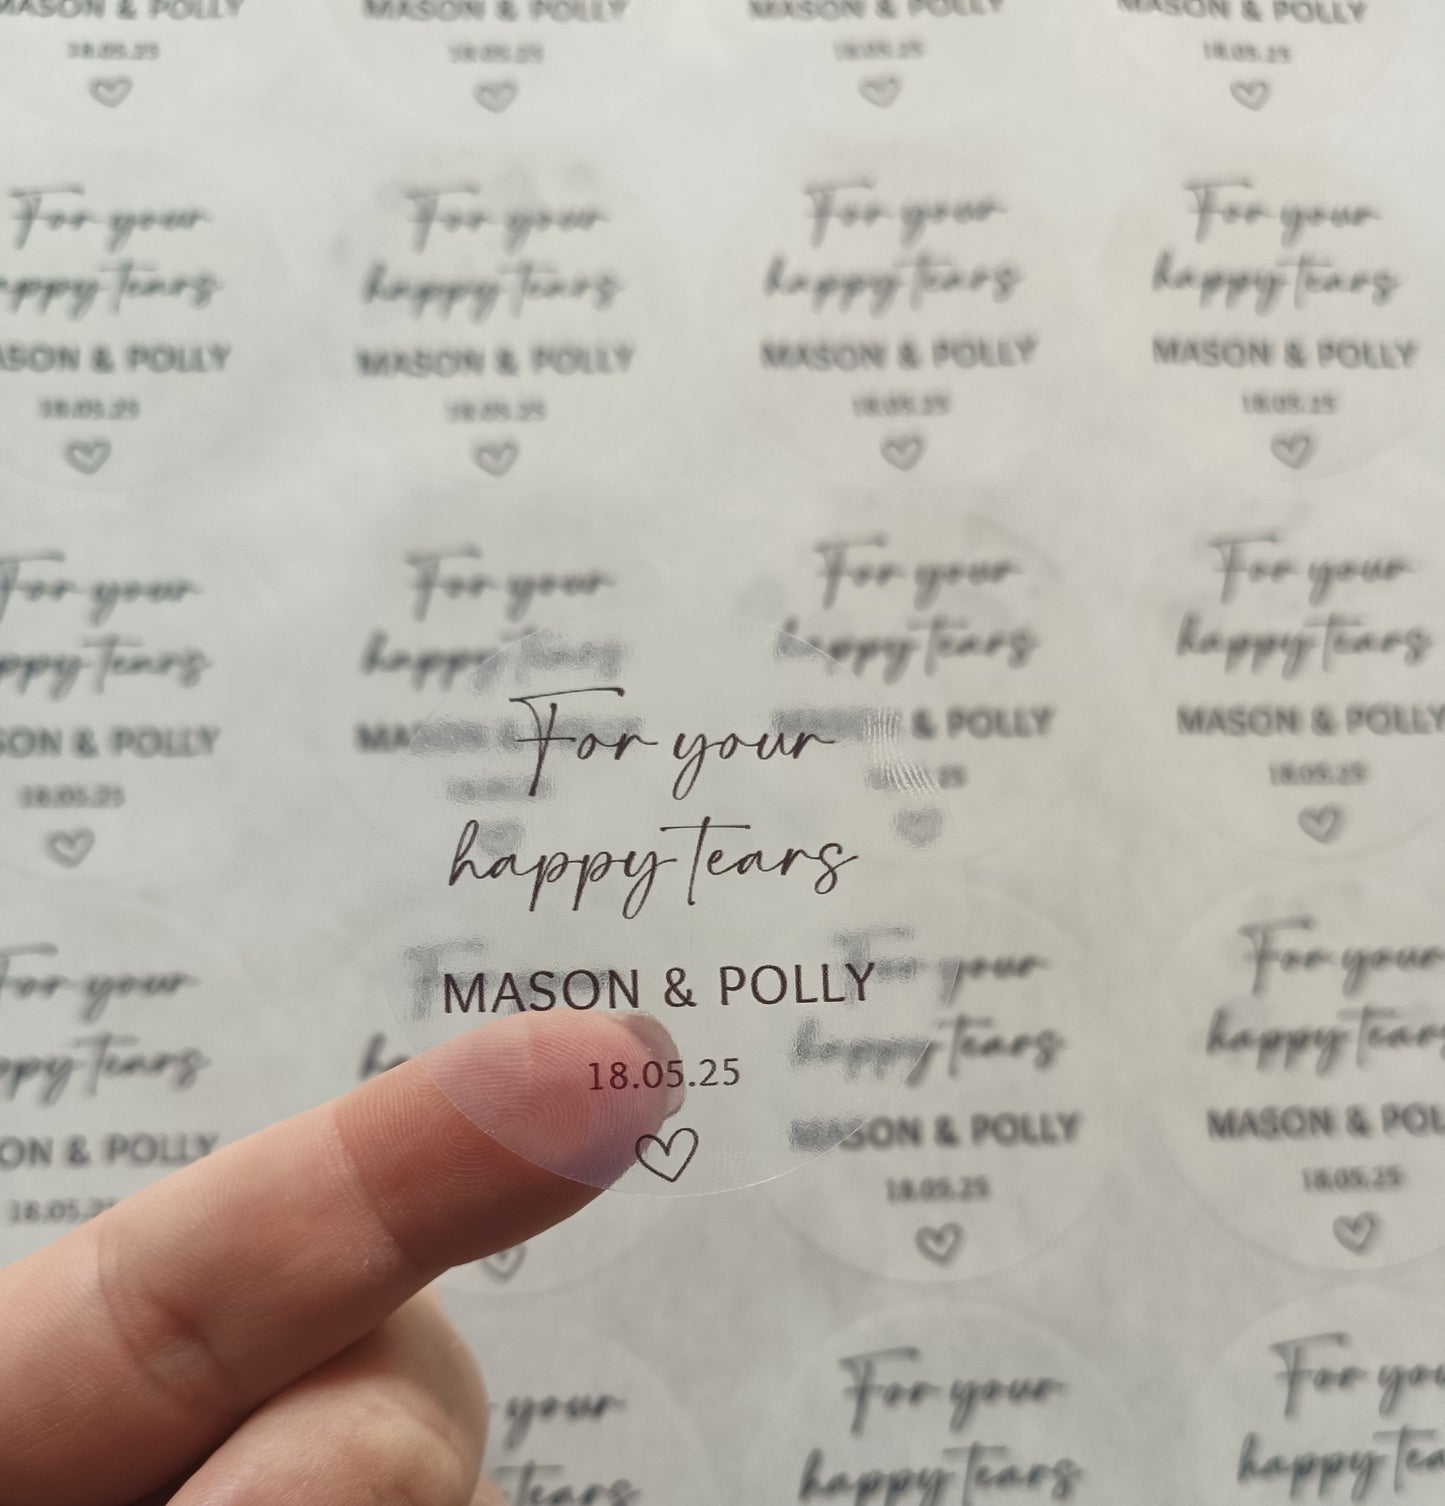 MASON & POLLY
18.05.25
MASON & POLLY
18.05.25
MASON & POLLY
18.05.25
MASON & POLLY
18.05.25
For your
appy Tears
ASON & POLLY
18.05.25
For your
happy Tears
MASON & POLLY
18.05.25
For your
happy Tears
MASON & POLLY
18.05.25
For your
happy Tears
MASON & POLLY
18.05.25
For your
ppy Tears
SON & POLLY
18.05.25
For your
happy Tears
For your
happy Tears
& POLLY
For your
happy Tears
MASON & POLLY
18.05.25
For your
happy Tears
MASON & POLLY
18.05.25
For your
ppy Tears
ON & POLLY
18.05.25
For your
happy Tears
MASON & POLLY
18.05.25
For your
happy Tears
MASON & POL
18.05.25
your
Tears
For your
happy Tears
For you
happy Tea